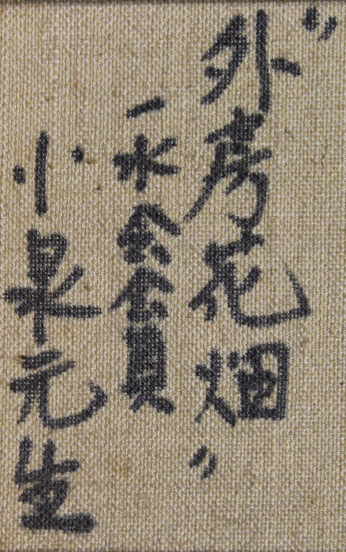 "外房花畑"
一水会会員
小泉元生